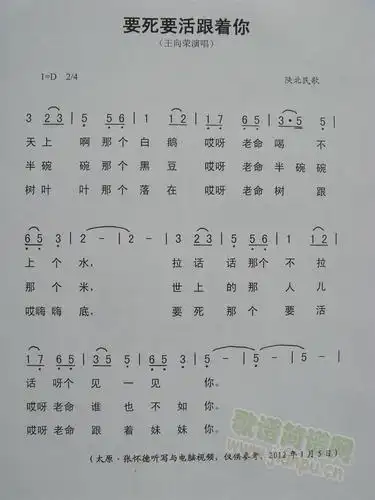 要死要活跟着你
(王向荣演唱)
1=D 2/4 陕北民歌
3 2 3 | 5 5 6 5 | 6 5 6 5 | 3·5 5 3 |
天上 啊那个白鹅 哎呀老命喝 不
半碗 碗那个黑豆 哎呀老命半碗碗
树叶 叶那个落在 哎呀老命树 跟
6 5 3 | 2 - | 2 - | 3 2 3 | 5 5 6 5 | 1 1 | 1 2 1 |
上个水, 拉话话那个不拉
那个米, 世上的那个人儿
哎嗨嗨底, 要死那个 要活
1 7 6 5 | 1 2 | 6 5 3 | 5 - | 5 - | 5 - ‖
话 呀个见一见 你。
哎呀老命谁也不如 你。
哎呀老命跟着妹妹 你。
(太原·张怀德听写与电脑视频,仅供参考。2012年1月5日)
歌谱简谱网